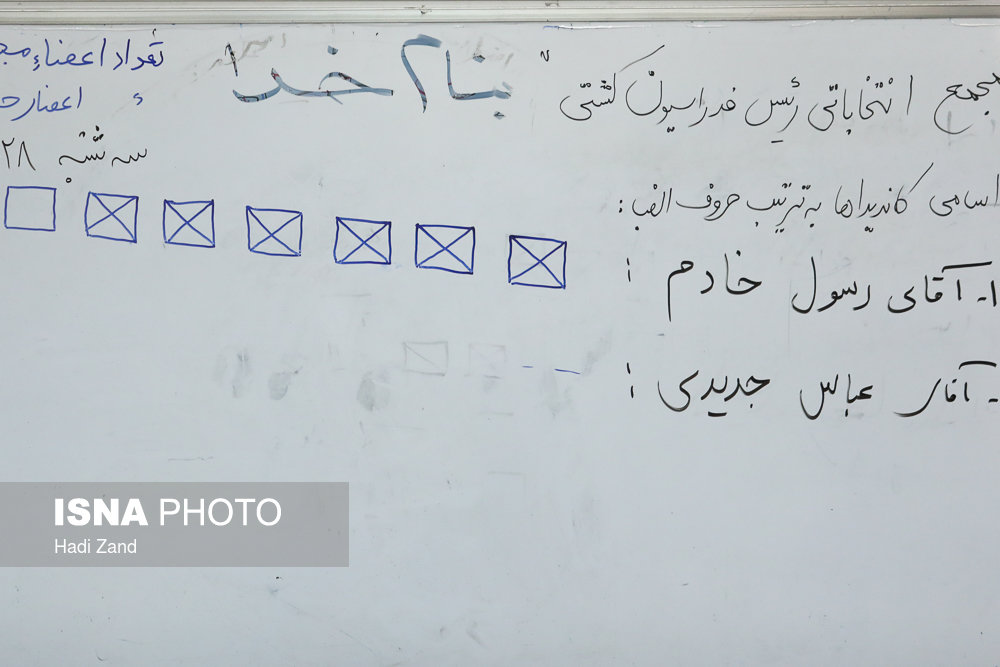 بنام خدا
مجمع انتخاباتی رئیس فدراسیون کشتی
اسامی کاندیداها به ترتیب حروف الف:
۱- آقای رسول خادم :
- آقای عباس جدیدی :
تعداد اعضاء
اعضا
سه شنبه ۲۸
ISNA PHOTO
Hadi Zand